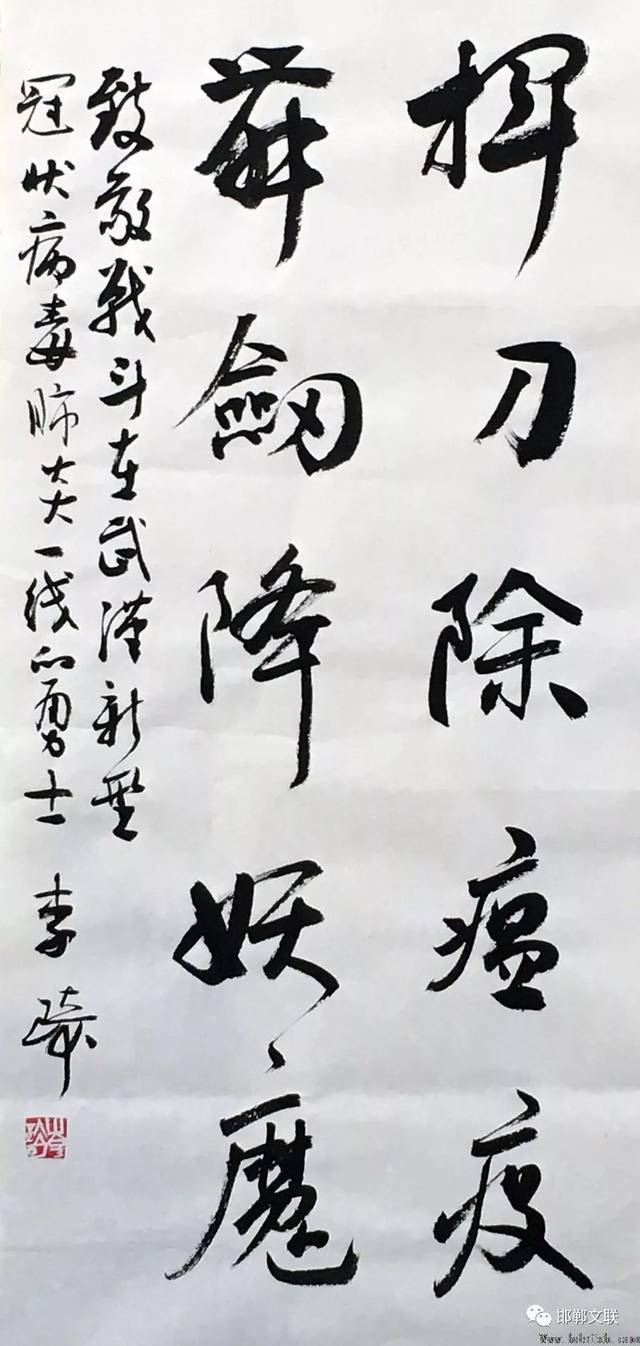 揮刀除瘟疫
舞劔降妖魔
致敬战斗在武漢新型
冠状病毒肺炎一线的勇士 李
邯郸文联